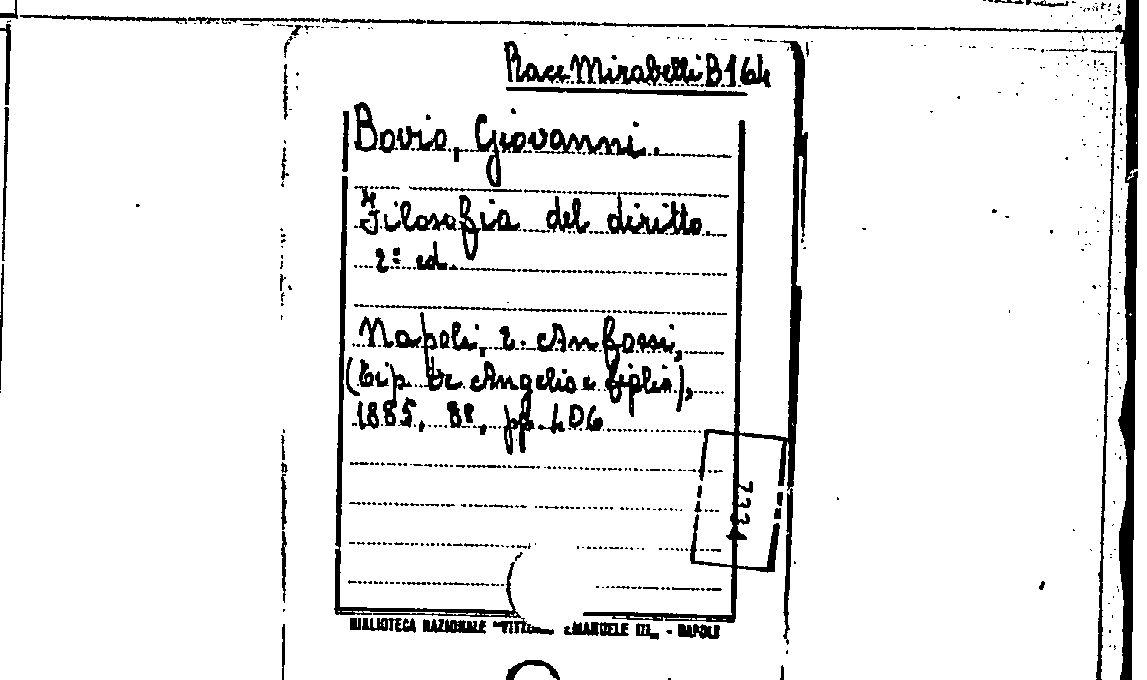 Race Mirabelli B 164
Bovio, Giovanni.
Filosofia del diritto.
2ª ed.
Napoli, E. Anfossi,
(Tip. De Angelis e figlio),
1885, 8º, pp. 406
7334
BIBLIOTECA NAZIONALE "VITTORIO EMANUELE III" - NAPOLI